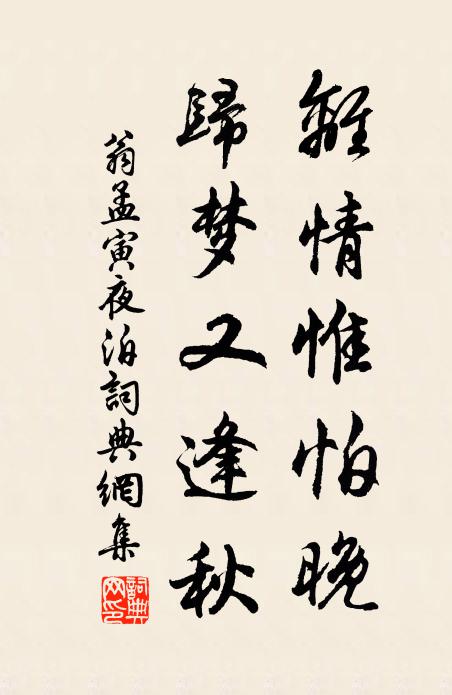 離情惟怕晚
歸梦又逢秋
翁孟寅夜泊詞典網集
詞典网印